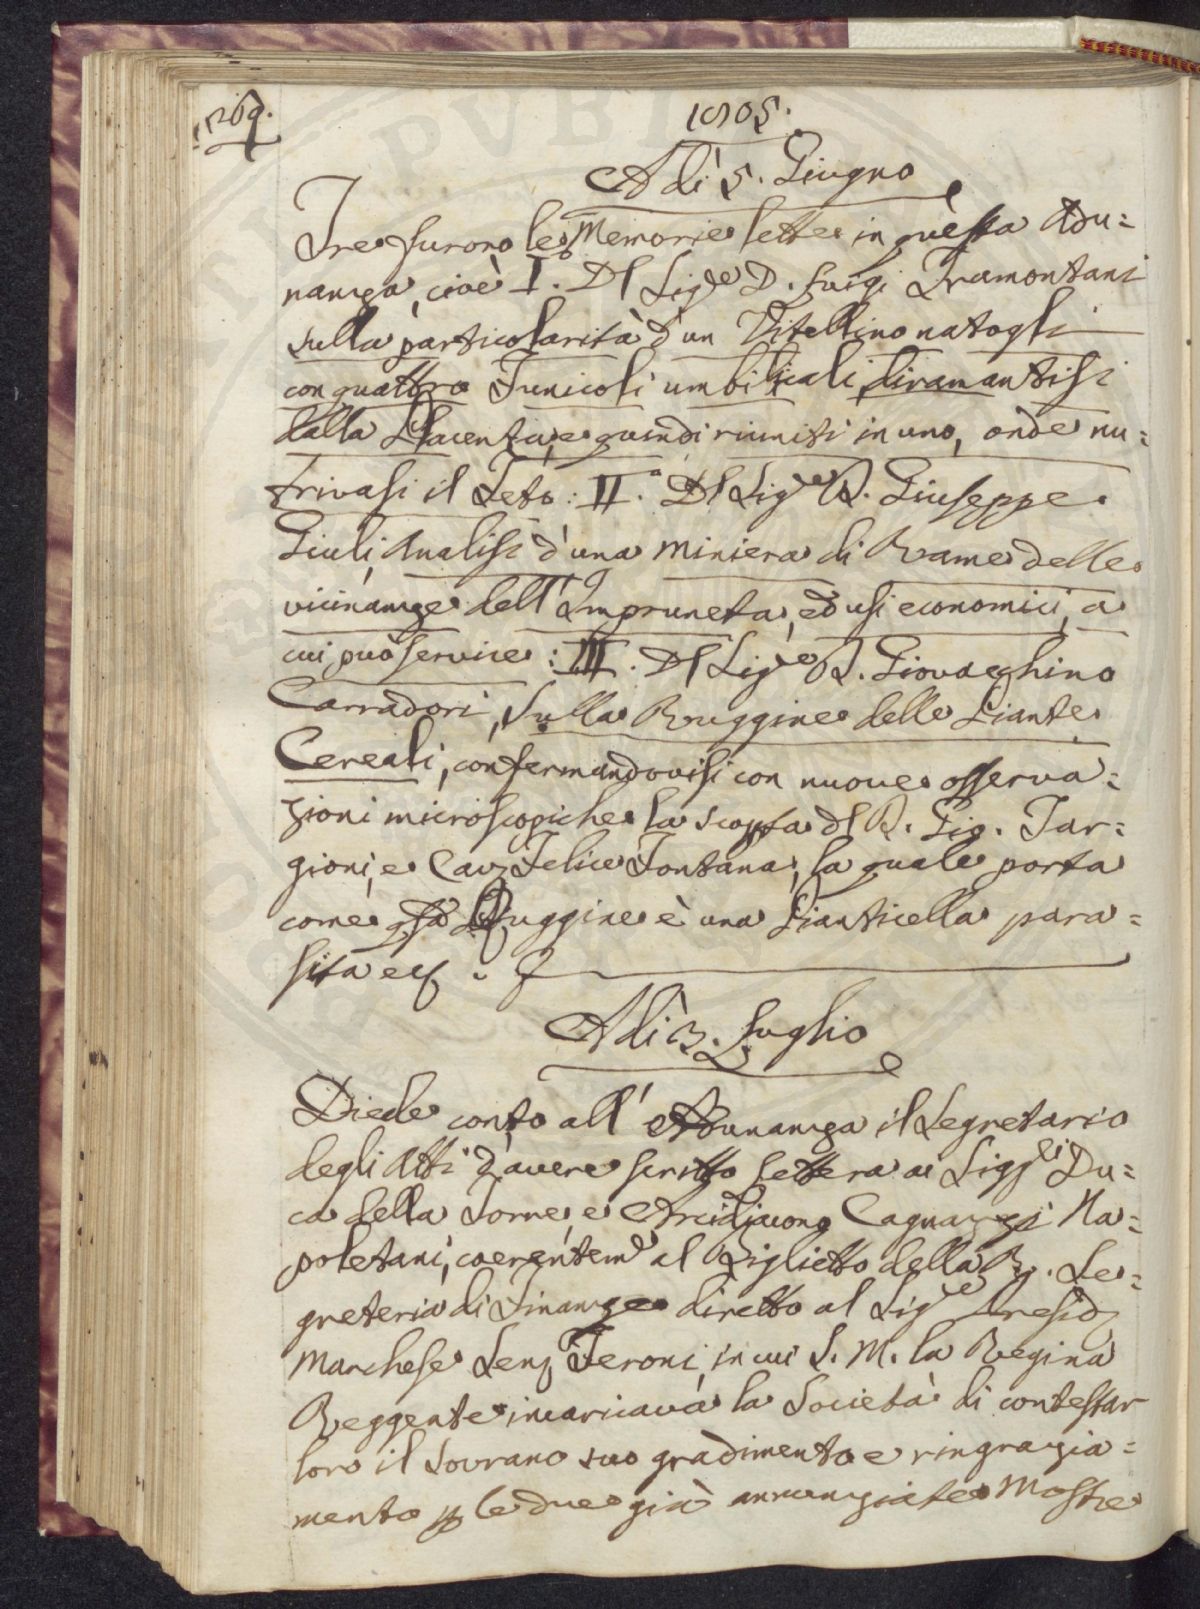 269.
1805.
Adì 5. Giugno
Tre furono le Memorie lette in questa Adu=
nanza, cioè I. Dl Sig.re D. Luigi Tramontani
sulla particolarità d'un Vitellino natogli
con quattro Funicoli umbilicali diramantisi
dalla Placenta, e quindi riuniti in uno, onde nu=
trivasi il Feto: II.° Dl Sig.re D. Giuseppe
Giuli, Analisi d'una Miniera di Rame delle
vicinanze dell'Impruneta, ed usi economici, a
cui può servire: III. Dl Sig.re D. Giovacchino
Carradori, Sulla Ruggine delle Piante
Cereali, confermandovisi con nuove osserva=
zioni microscopiche la scopta dl D. Gio. Tar=
gioni, e Cav. Felice Fontana, la quale porta
come qta Ruggine è una Pianticella para=
sita ec.
Adì 3. Luglio
Diede conto all'Adunanza il Segretario
degli Atti d'avere scritto lettera ai Sigg.ri Du=
ca della Torre, e Arcidiacono Cagnazzi Na=
poletani, coerentem.e al Biglietto della R. Se=
greteria di Finanze diretto al Sig.re Presid.
Marchese Senr Feroni, in cui S. M. la Regina
Reggente incaricava la Società di contestar
loro il Sovrano suo gradimento e ringrazia=
mento p le due già annunziate Mostre